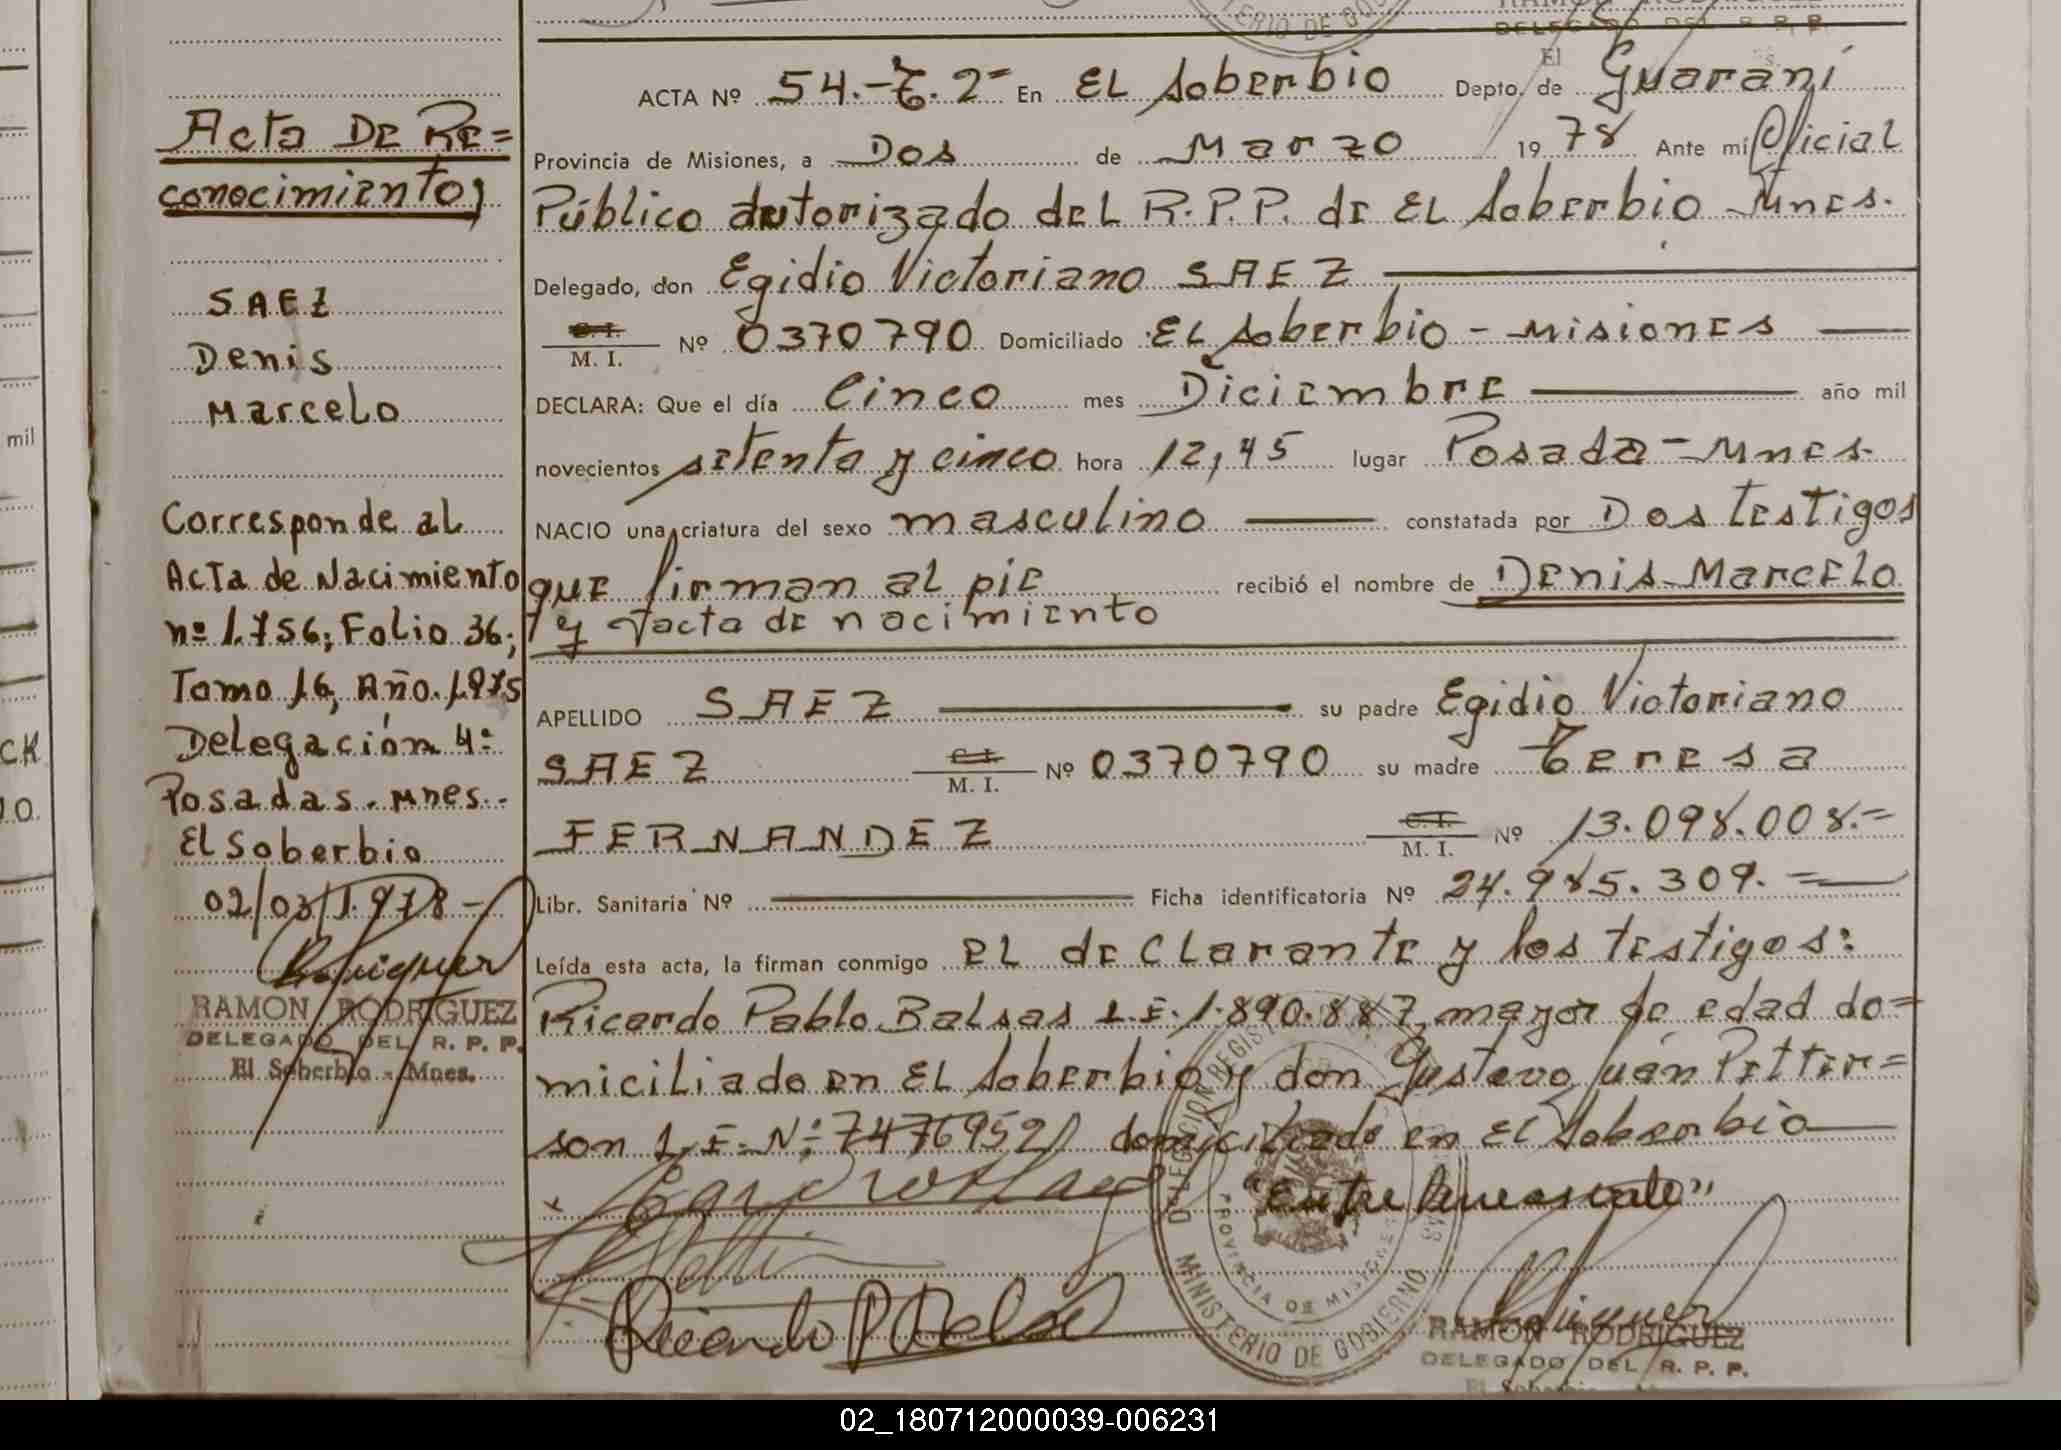 Acta DE RE=
conocimiento;
SAEZ
Denis
Marcelo
Corresponde al
Acta de Nacimiento
nº 1.756; Folio 36;
Tomo 16, Año. 1975
Delegación 4ª
Posadas. Mnes..
El Soberbio
02/03/1.978-
RAMON RODRIGUEZ
DELEGADO DEL R. P. P.
El Soberbio - Mnes.
mil
CK
O.
DELEGADO DEL R. P. P.
El
ACTA Nº 54.-T. 2º En EL Soberbio Depto. de Guaraní
Provincia de Misiones, a Dos de Marzo 19 78 Ante mí Oficial
Público autorizado del R.P.P. de EL Soberbio Mnes.
Delegado, don Egidio Victoriano SAEZ
C. I.
M. I. Nº 0370790 Domiciliado EL Soberbio - Misiones
DECLARA: Que el día Cinco mes Diciembre año mil
novecientos setenta y cinco hora 12,45 lugar Posada-Mnes.
NACIO una criatura del sexo masculino constatada por Dos testigos
que firman al pie recibió el nombre de Denis Marcelo
y acta de nacimiento
APELLIDO SAEZ su padre Egidio Victoriano
SAEZ C. I. M. I. Nº 0370790 su madre Teresa
FERNANDEZ C. I. M. I. Nº 13.098.008.=
Libr. Sanitaria Nº Ficha identificatoria Nº 24.985.309.=
Leída esta acta, la firman conmigo el declarante y los testigos:
Ricardo Pablo Balsas L.E. 1.890.887, mayor de edad do=
miciliado en EL Soberbio y don Gustavo Juán Petter=
son L.E. Nº 7476952 domiciliado en El Soberbio
"Entre lineas vale"
Ricardo P Balsas
DELEGACION REGIS
PROVINCIA DE MISIONES
MINISTERIO DE GOBIERNO
RAMON RODRIGUEZ
DELEGADO DEL R. P. P.
02_180712000039-006231